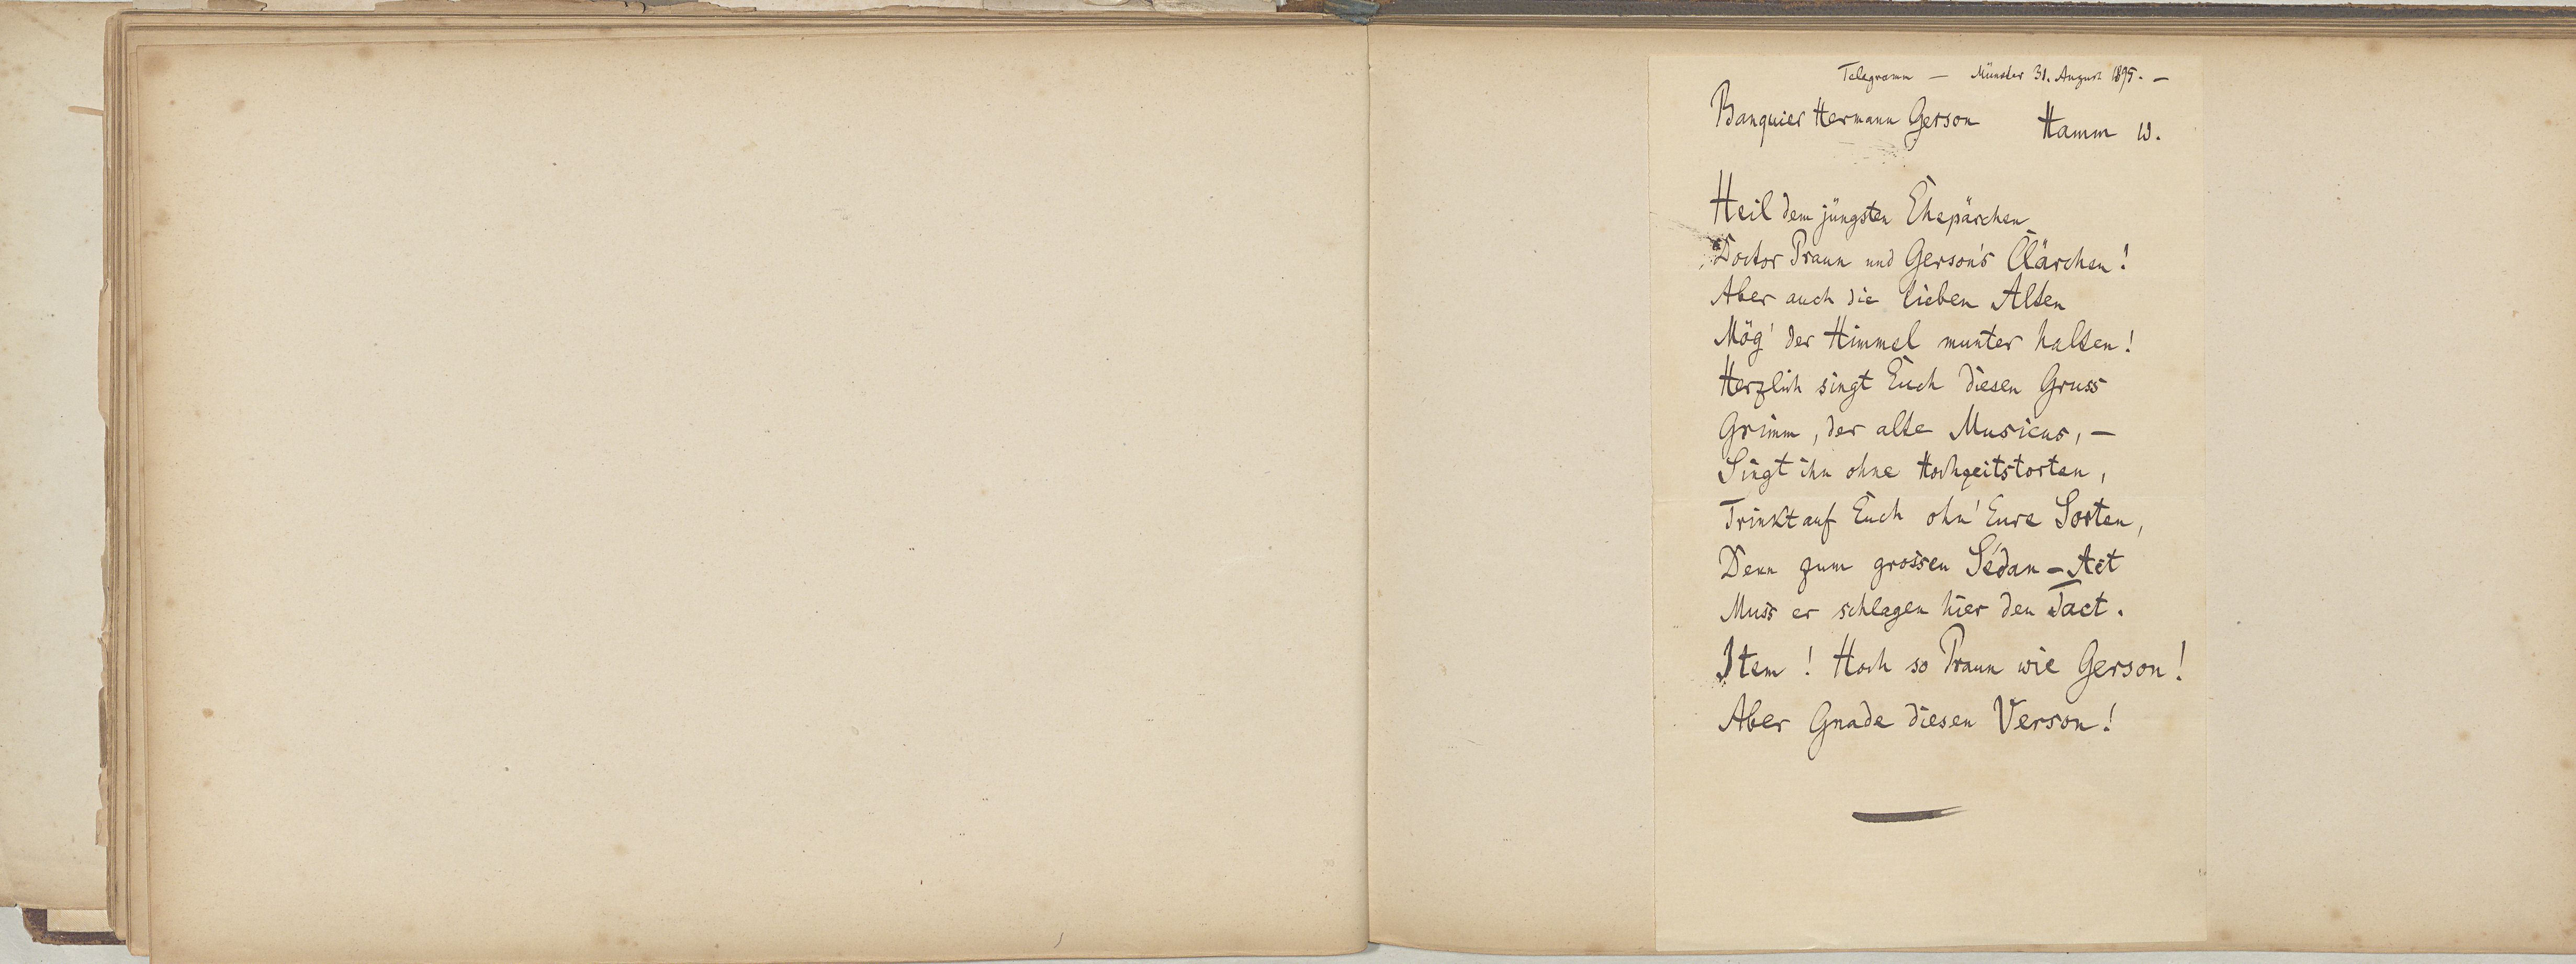 Telegramm — Münster 31. August 1895. —
Banquier Hermann Gerson Hamm W.
Heil dem jüngsten Ehepärchen
Doctor Praun und Gerson's Clärchen!
Aber auch die lieben Alten
Mög' der Himmel munter halten!
Herzlich singt Euch diesen Gruss
Grimm, der alte Musicus, —
Singt ihn ohne Hochzeitstorten,
Trinkt auf Euch ohn' Eure Sorten,
Denn zum grossen Sédan-Act
Muss er schlagen hier den Tact.
Item! Hoch so Praun wie Gerson!
Aber Gnade diesen Verson!